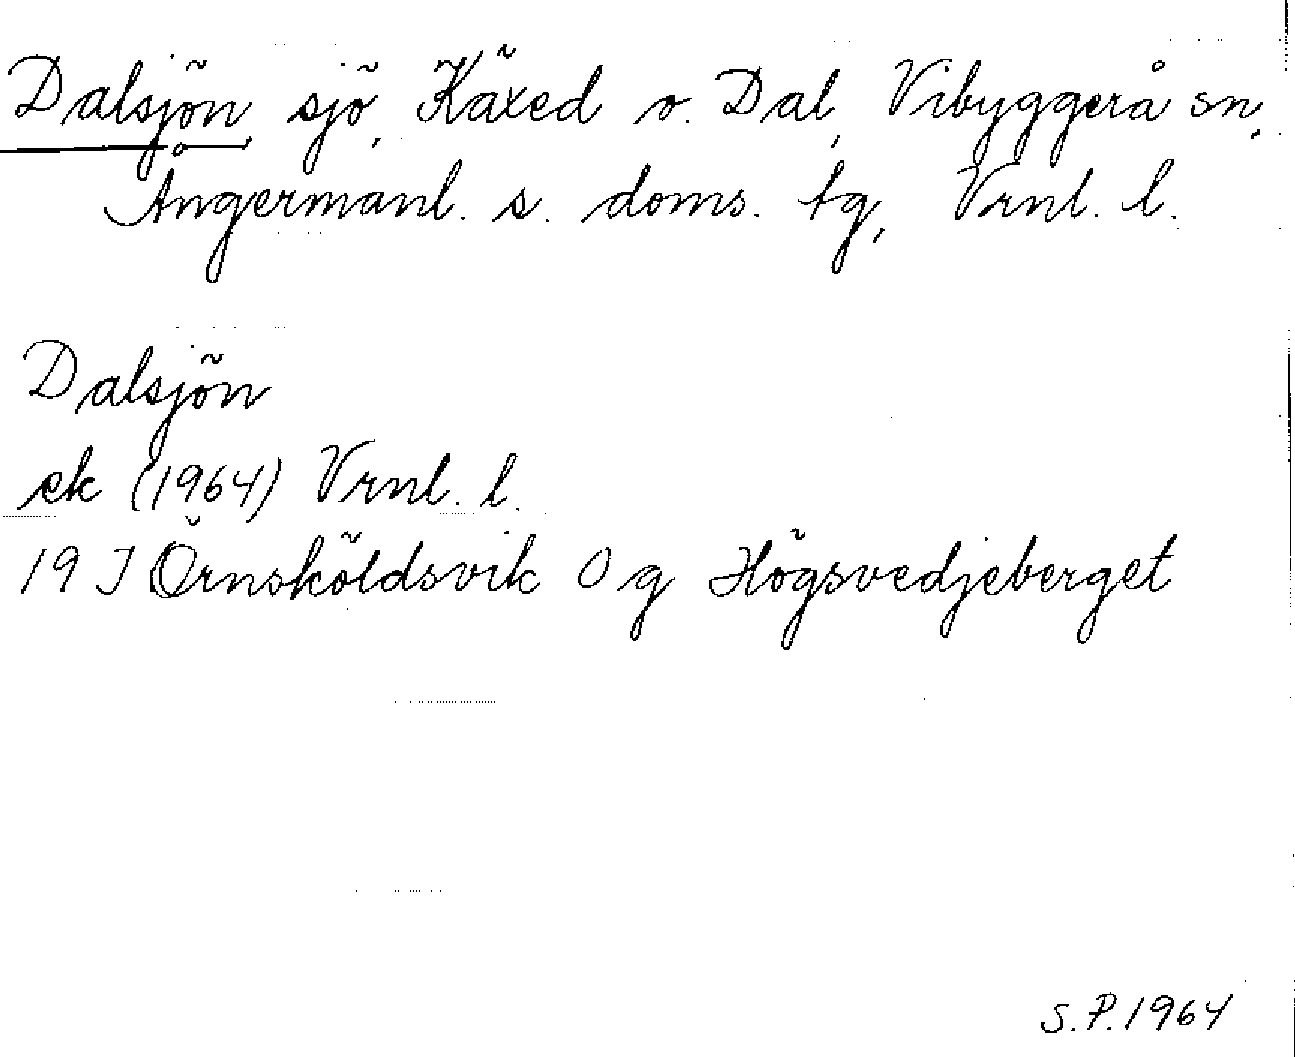 Dalsjön, sjö, Käxed o. Dal, Vibyggerå sn,
Ångermanl. s. doms. tg, Vrnl. l.
Dalsjön
ek (1964) Vrnl. l.
19 J Örnsköldsvik 0 g Högsvedjeberget
S.P. 1964